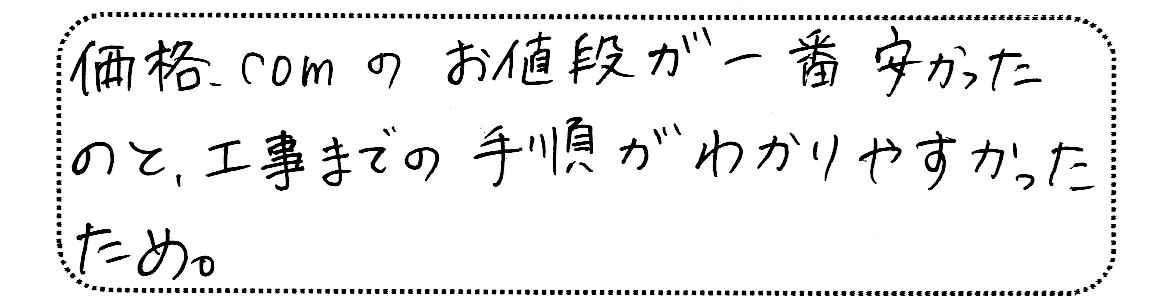 価格.comのお値段が一番安かった
のと、工事までの手順がわかりやすかった
ため。